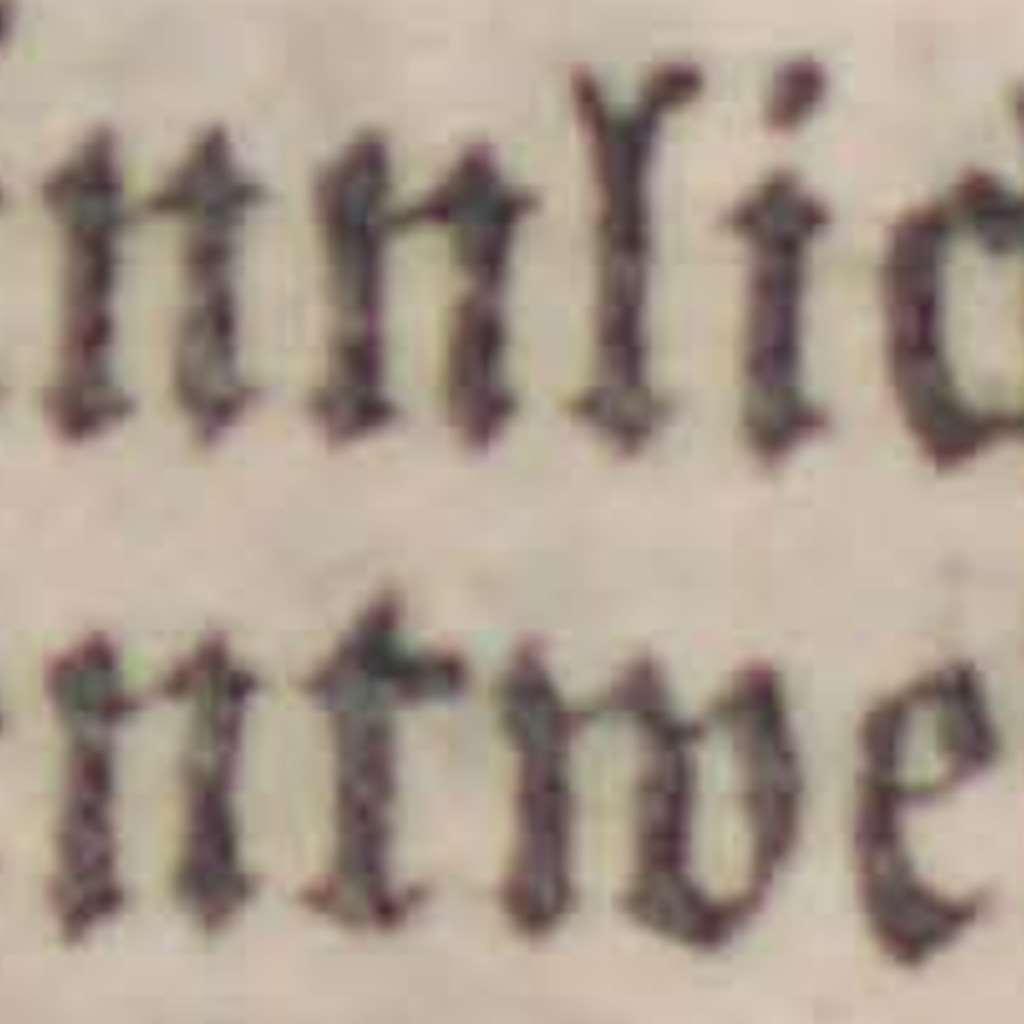 nnlic
ntwe